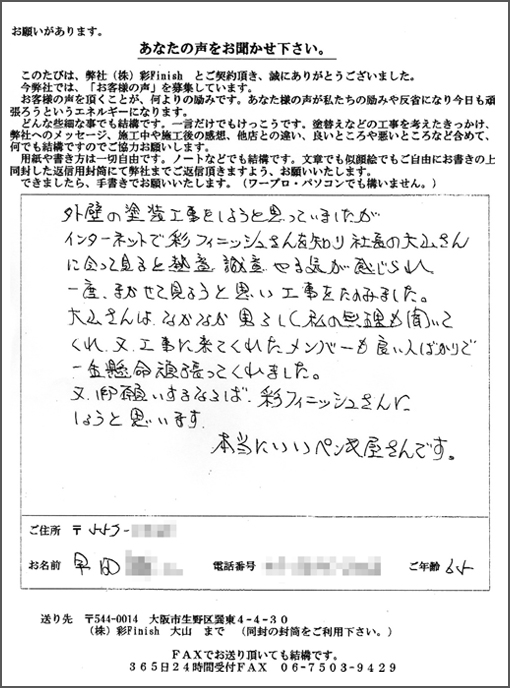 お願いがあります。
あなたの声をお聞かせ下さい。
このたびは、弊社（株）彩Finish とご契約頂き、誠にありがとうございました。
今弊社では、「お客様の声」を募集しています。
お客様の声を頂くことが、何よりの励みです。あなた様の声が私たちの励みや反省になり今日も頑
張ろうというエネルギーになります。
どんな些細な事でも結構です。一言だけでもけっこうです。塗替えなどの工事を考えたきっかけ、
弊社へのメッセージ、施工中や施工後の感想、他店との違い、良いところや悪いところなど含めて、
何でも結構ですのでご協力お願いします。
用紙や書き方は一切自由です。ノートなどでも結構です。文章でも似顔絵でもご自由にお書きの上
同封した返信用封筒にて弊社までご返信頂きますよう、お願いいたします。
できましたら、手書きでお願いいたします。（ワープロ・パソコンでも構いません。）
外壁の塗装工事をしようと思っていましたが
インターネットで彩フィニッシュさんを知り社長の大山さん
に会って見ると熱意、誠意、やる気が感じられ
一度、まかせて見ようと思い工事をたのみました。
大山さんは、なかなか男らしく私の無理も聞いて
くれ、又、工事に来てくれたメンバーも良い人ばかりで
一生懸命頑張ってくれました。
又、御願いするならば、彩フィニッシュさんに
しようと思います。
本当にいいペンキ屋さんです。
ご住所 〒553-
お名前 早田 電話番号 ご年齢 65
送り先 〒544-0014 大阪市生野区巽東4-4-30
（株）彩Finish 大山 まで （同封の封筒をご利用下さい。）
FAXでお送り頂いても結構です。
365日24時間受付FAX 06-7503-9429